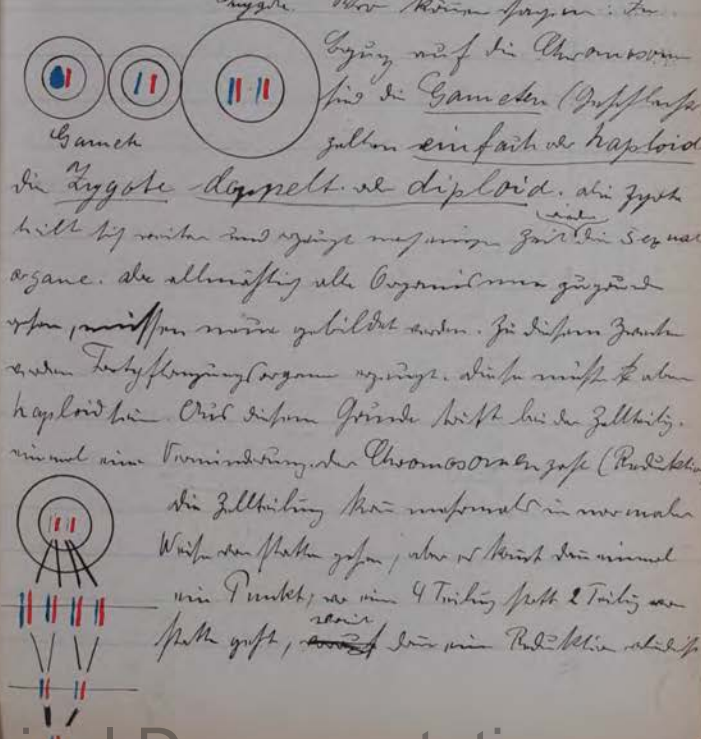 Zygote. Wir können sagen: In
Bezug auf die Chromosomen
sind die Gameten (Geschlechts
Gamete
zellen einfach oder haploid
die Zygote doppelt oder diploid. die Zygote
teilt sich weiter und erzeugt nach einiger Zeit wieder die Sexual
organe. da allmählich alle Organismen zugrunde
gehen, müssen neue gebildet werden. Zu diesem Zwecke
werden Fortpflanzungsorgane erzeugt. diese müssen aber
haploid sein. Aus diesem Grunde tritt bei der Zellteilg.
einmal eine Verminderung der Chromosomenzahl (Reduktion
die Zellteilung kann mehrmals in normaler
Weise von statten gehen, aber es kommt dann einmal
ein Punkt, wo eine 4 Teilung statt 2 Teilung von
statten geht, womit dann eine Reduktion